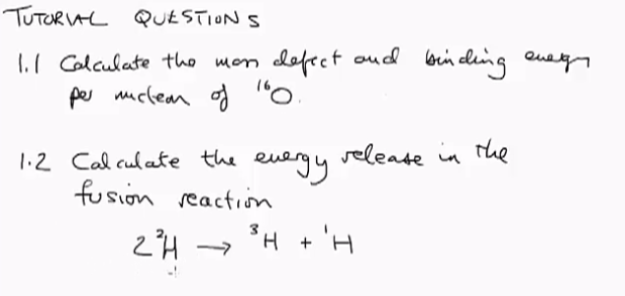 TUTORIAL QUESTIONS
1.1 Calculate the mass defect and binding energy
per nucleon of ¹⁶O.
1.2 Calculate the energy release in the
fusion reaction
2 ²H → ³H + ¹H